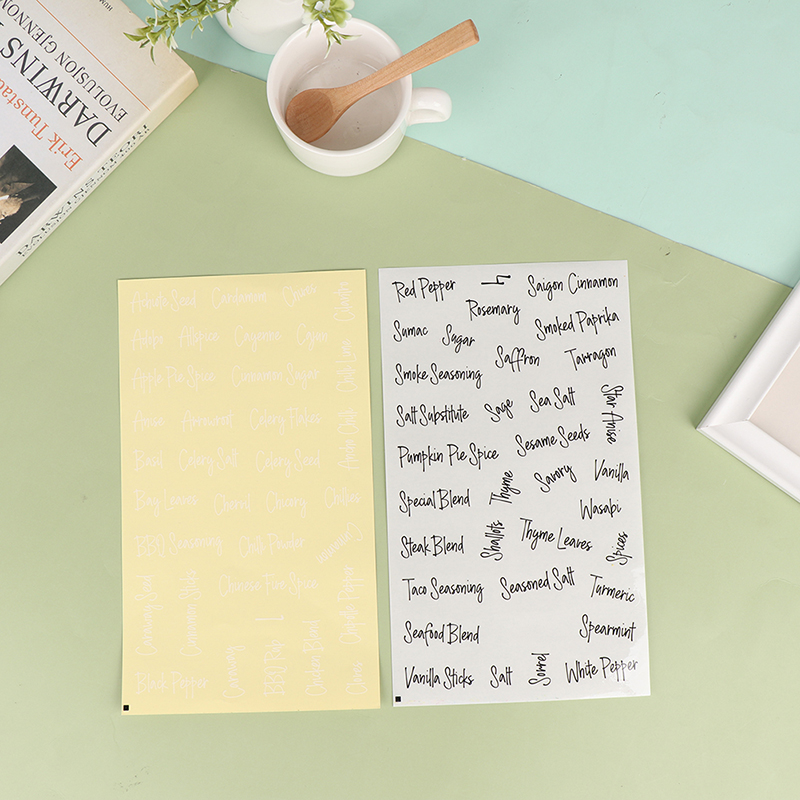 DARWINS
EVOLUSJON GJENNOM
Erik Tunstad
Cardamom
Cilantro
Adobo Allspice Cayenne Cajun
Apple Pie Spice Cinnamon Sugar
Chili Lime
Arrowroot Celery Flakes
Ancho Chili
Basil Celery Salt Celery Seed
Bay Leaves Chervil Chives
BBQ Seasoning Chili Powder
Cinnamon
Caraway Seed
Cinnamon Sticks
Chinese Five Spice
Chipotle Pepper
Black Pepper
Caraway
BBQ Rub
1
Chicken Blend
Red Pepper 4 Saigon Cinnamon
Rosemary
Sumac Sugar Smoked Paprika
Saffron Tarragon
Smoke Seasoning
Salt Substitute Sage Sea Salt Star Anise
Pumpkin Pie Spice Sesame Seeds
Savory Vanilla
Special Blend Thyme
Wasabi
Steak Blend Shallots Thyme Leaves Spices
Taco Seasoning Seasoned Salt Turmeric
Seafood Blend Spearmint
Vanilla Sticks Salt Sorrel White Pepper